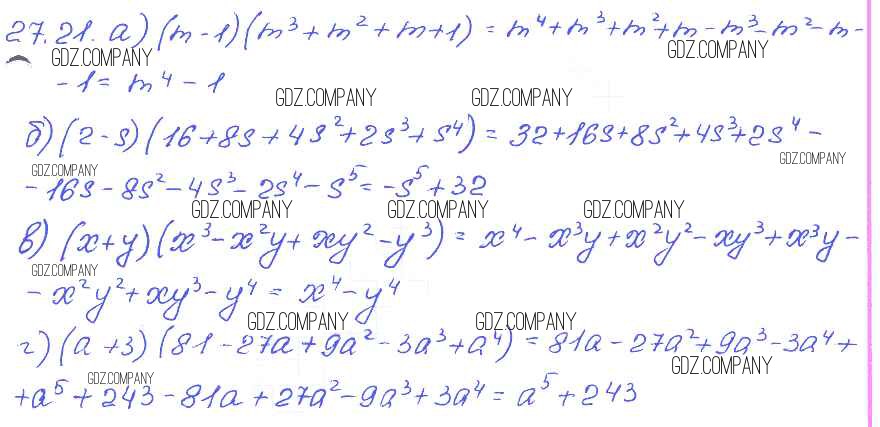 27.21. а) (m-1)(m³+m²+m+1) = m⁴+m³+m²+m-m³-m²-m-
GDZ.COMPANY GDZ.COMPANY
-1= m⁴-1
GDZ.COMPANY GDZ.COMPANY
б) (2-s)(16+8s+4s²+2s³+s⁴) = 32+16s+8s²+4s³+2s⁴-
GDZ.COMPANY GDZ.COMPANY
-16s-8s²-4s³-2s⁴-s⁵=-s⁵+32
GDZ.COMPANY GDZ.COMPANY GDZ.COMPANY
в) (x+y)(x³-x²y+xy²-y³) = x⁴-x³y+x²y²-xy³+x³y-
GDZ.COMPANY
-x²y²+xy³-y⁴ = x⁴-y⁴
GDZ.COMPANY GDZ.COMPANY
г) (a+3)(81-27a+9a²-3a³+a⁴) = 81a-27a²+9a³-3a⁴+
GDZ.COMPANY GDZ.COMPANY
+a⁵+243-81a+27a²-9a³+3a⁴=a⁵+243